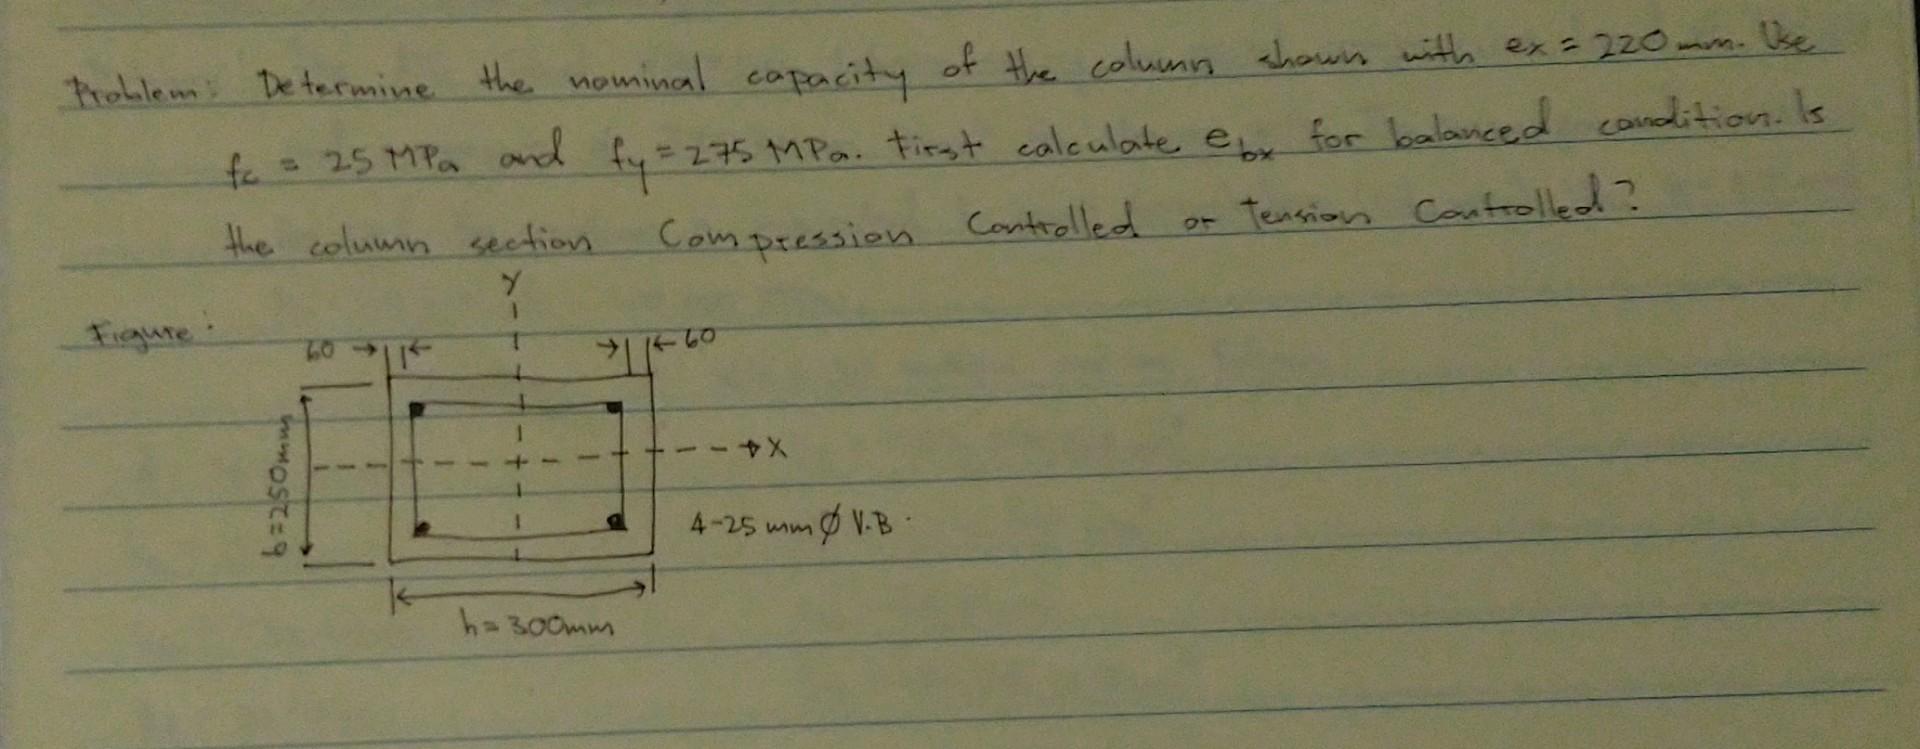 Problem: Determine the nominal capacity of the column shown with ex = 220 mm. Use
fc = 25 MPa and fy = 275 MPa. First calculate ebx for balanced condition. Is
the column section Compression Controlled or Tension Controlled?
Y
Figure:
60
60
b=250mm
X
4-25 mm Ø V.B.
h=300mm